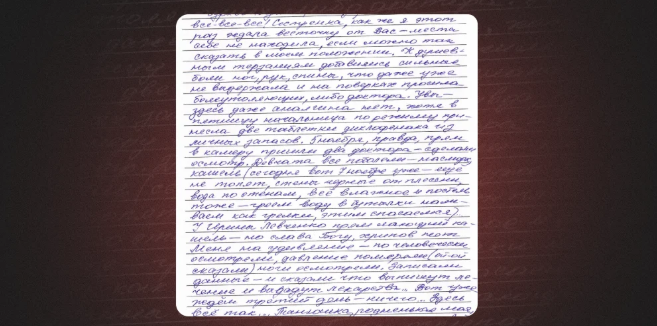 все-все-все! Сестренка, как же я этот
раз ждала весточку от вас – места
себе не находила, если можно так
сказать в моем положении. К душев-
ным терзаниям добавились сильные
боли ног, рук, спины, что даже уже
не выдержала и на поверках просила
болеутоляющим, либо доктора. Увы –
здесь даже анальгина нет, хотя в
пятницу начальница по режиму при-
несла две таблетки диклофенака из
личных запасов. 5 ноября, правда, прям
в камеру пришли два доктора – сделали
осмотр. Девчата все болеем –
кашель (сегодня вот 7 ноября уже – ещё
не топят, стены черные от плесени,
вода по стенам, всё влажное и постель
тоже – греем воду в бутылки нали-
ваем как грелки, этим спасаемся).
У Ирины Левченко прям лающий ка-
шель – но слава Богу, хрипов нет.
Меня на удивление – по-человечески
осмотрели, давление померяли
сказали) ноги осмотрели. Записали
данные – и сказали что выпишут ле-
чение и выдадут лекарства.. Вот уже
ждем третий день – ничего.. Здесь
всё так... Танюшка, родненькая моя